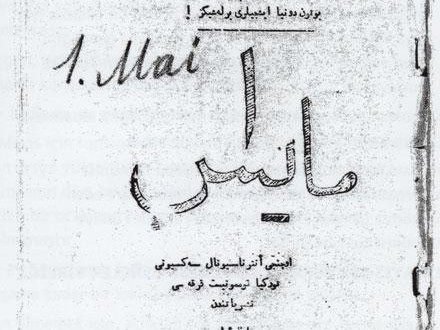 بوتون دونیا ایشچیلری برله‌شیکز !
1. Mai
١ مایس
اوچنجی آنترناسیونال سه‌کسیونی
تورکیا قومونیست فرقه سی
نشریاتندن